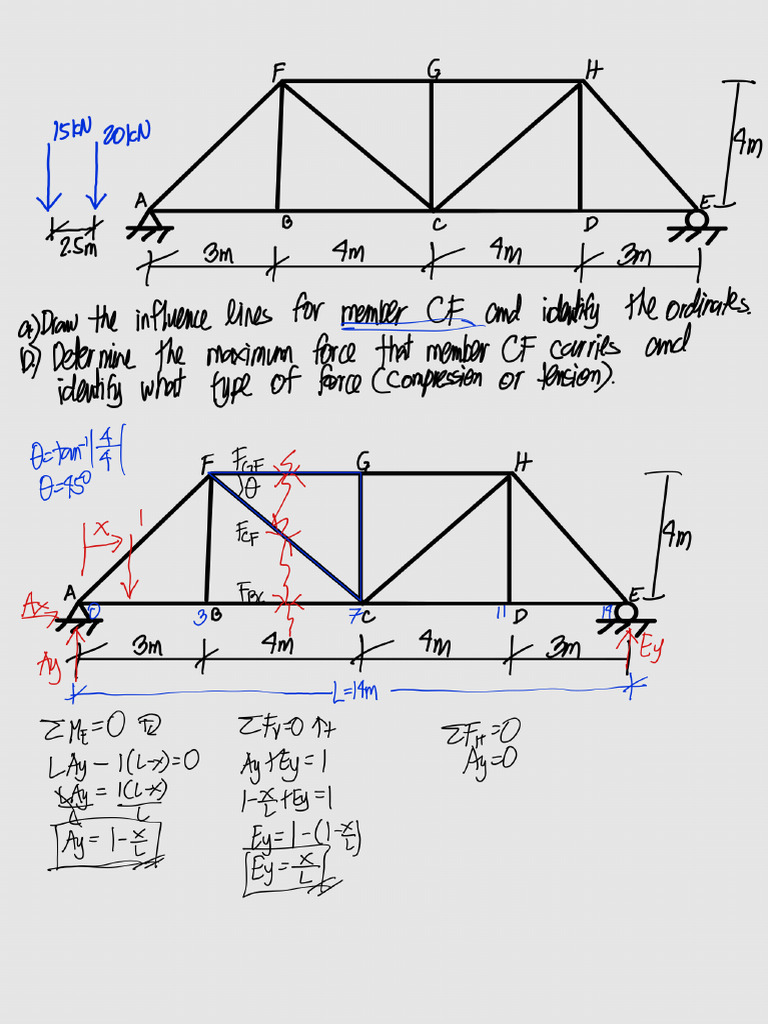 F G H
15kN 20kN 4m
A B C D E
2.5m 3m 4m 4m 3m
a) Draw the influence lines for member CF and identify the ordinates.
b) Determine the maximum force that member CF carries and
identify what type of force (compression or tension).
θ=tan⁻¹|4/4|
θ=45°
F F_GF G H
θ
F_CF 4m
x 1
A F_BC E
Ax 0 3 B 7 C 11 D 14
Ay 3m 4m 4m 3m Ey
L=14m
ΣM_E=0
LAy - 1(L-x)=0
LAy/L = 1(L-x)/L
Ay = 1-x/L
ΣF_V=0 ↑+
Ay+Ey=1
1-x/L+Ey=1
Ey=1-(1-x/L)
Ey=x/L
ΣF_H=0
Ay=0